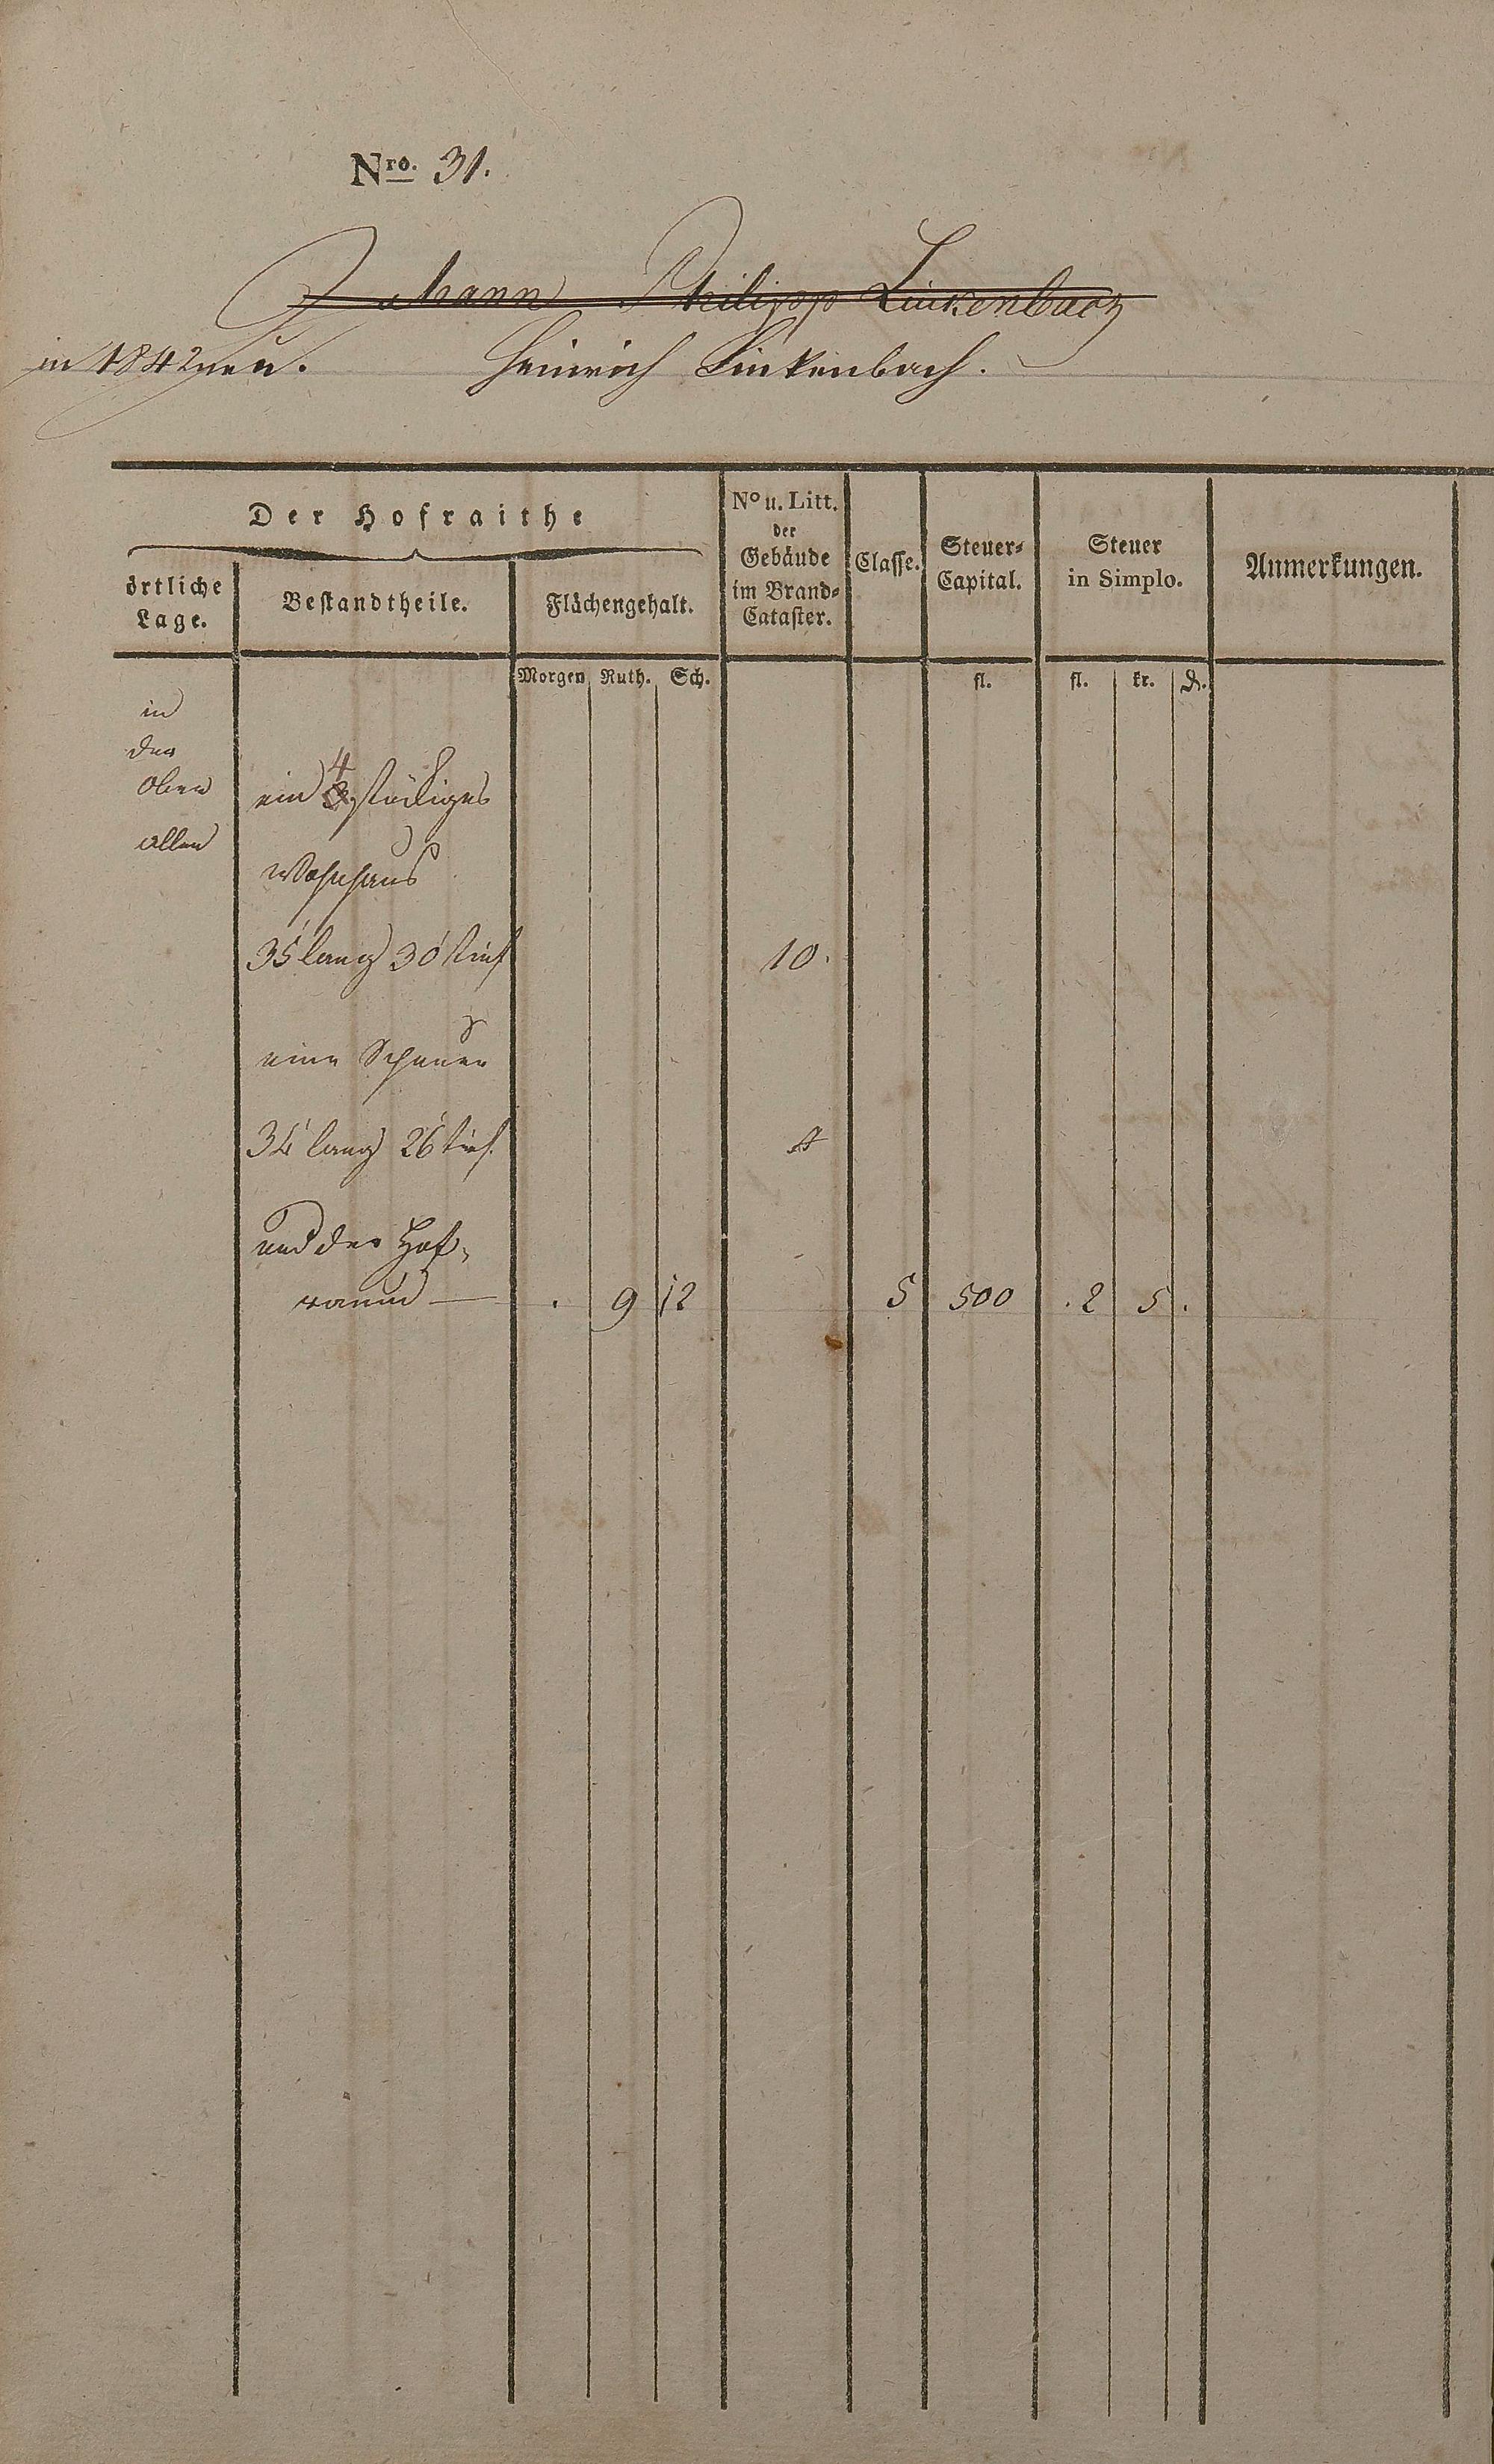 Nro. 31.
Johann Philipp Linkenbach
in 1842 neu. Heinrich Linkenbach.
Der Hofraithe
örtliche Lage.
Bestandtheile.
Flächengehalt.
No u. Litt. der Gebäude im Brand-Cataster.
Classe.
Steuer-Capital.
Steuer in Simplo.
Anmerkungen.
Morgen Ruth. Sch. fl. fl. kr. ₰.
in
der
oben
allen
ein 4 stöckiges
Wohnhaus
35' lang 30' tief 10.
eine Scheuer
34' lang 26' tief. A
und der Hof-
raum — . 9 12 5 500 . 2 5 .